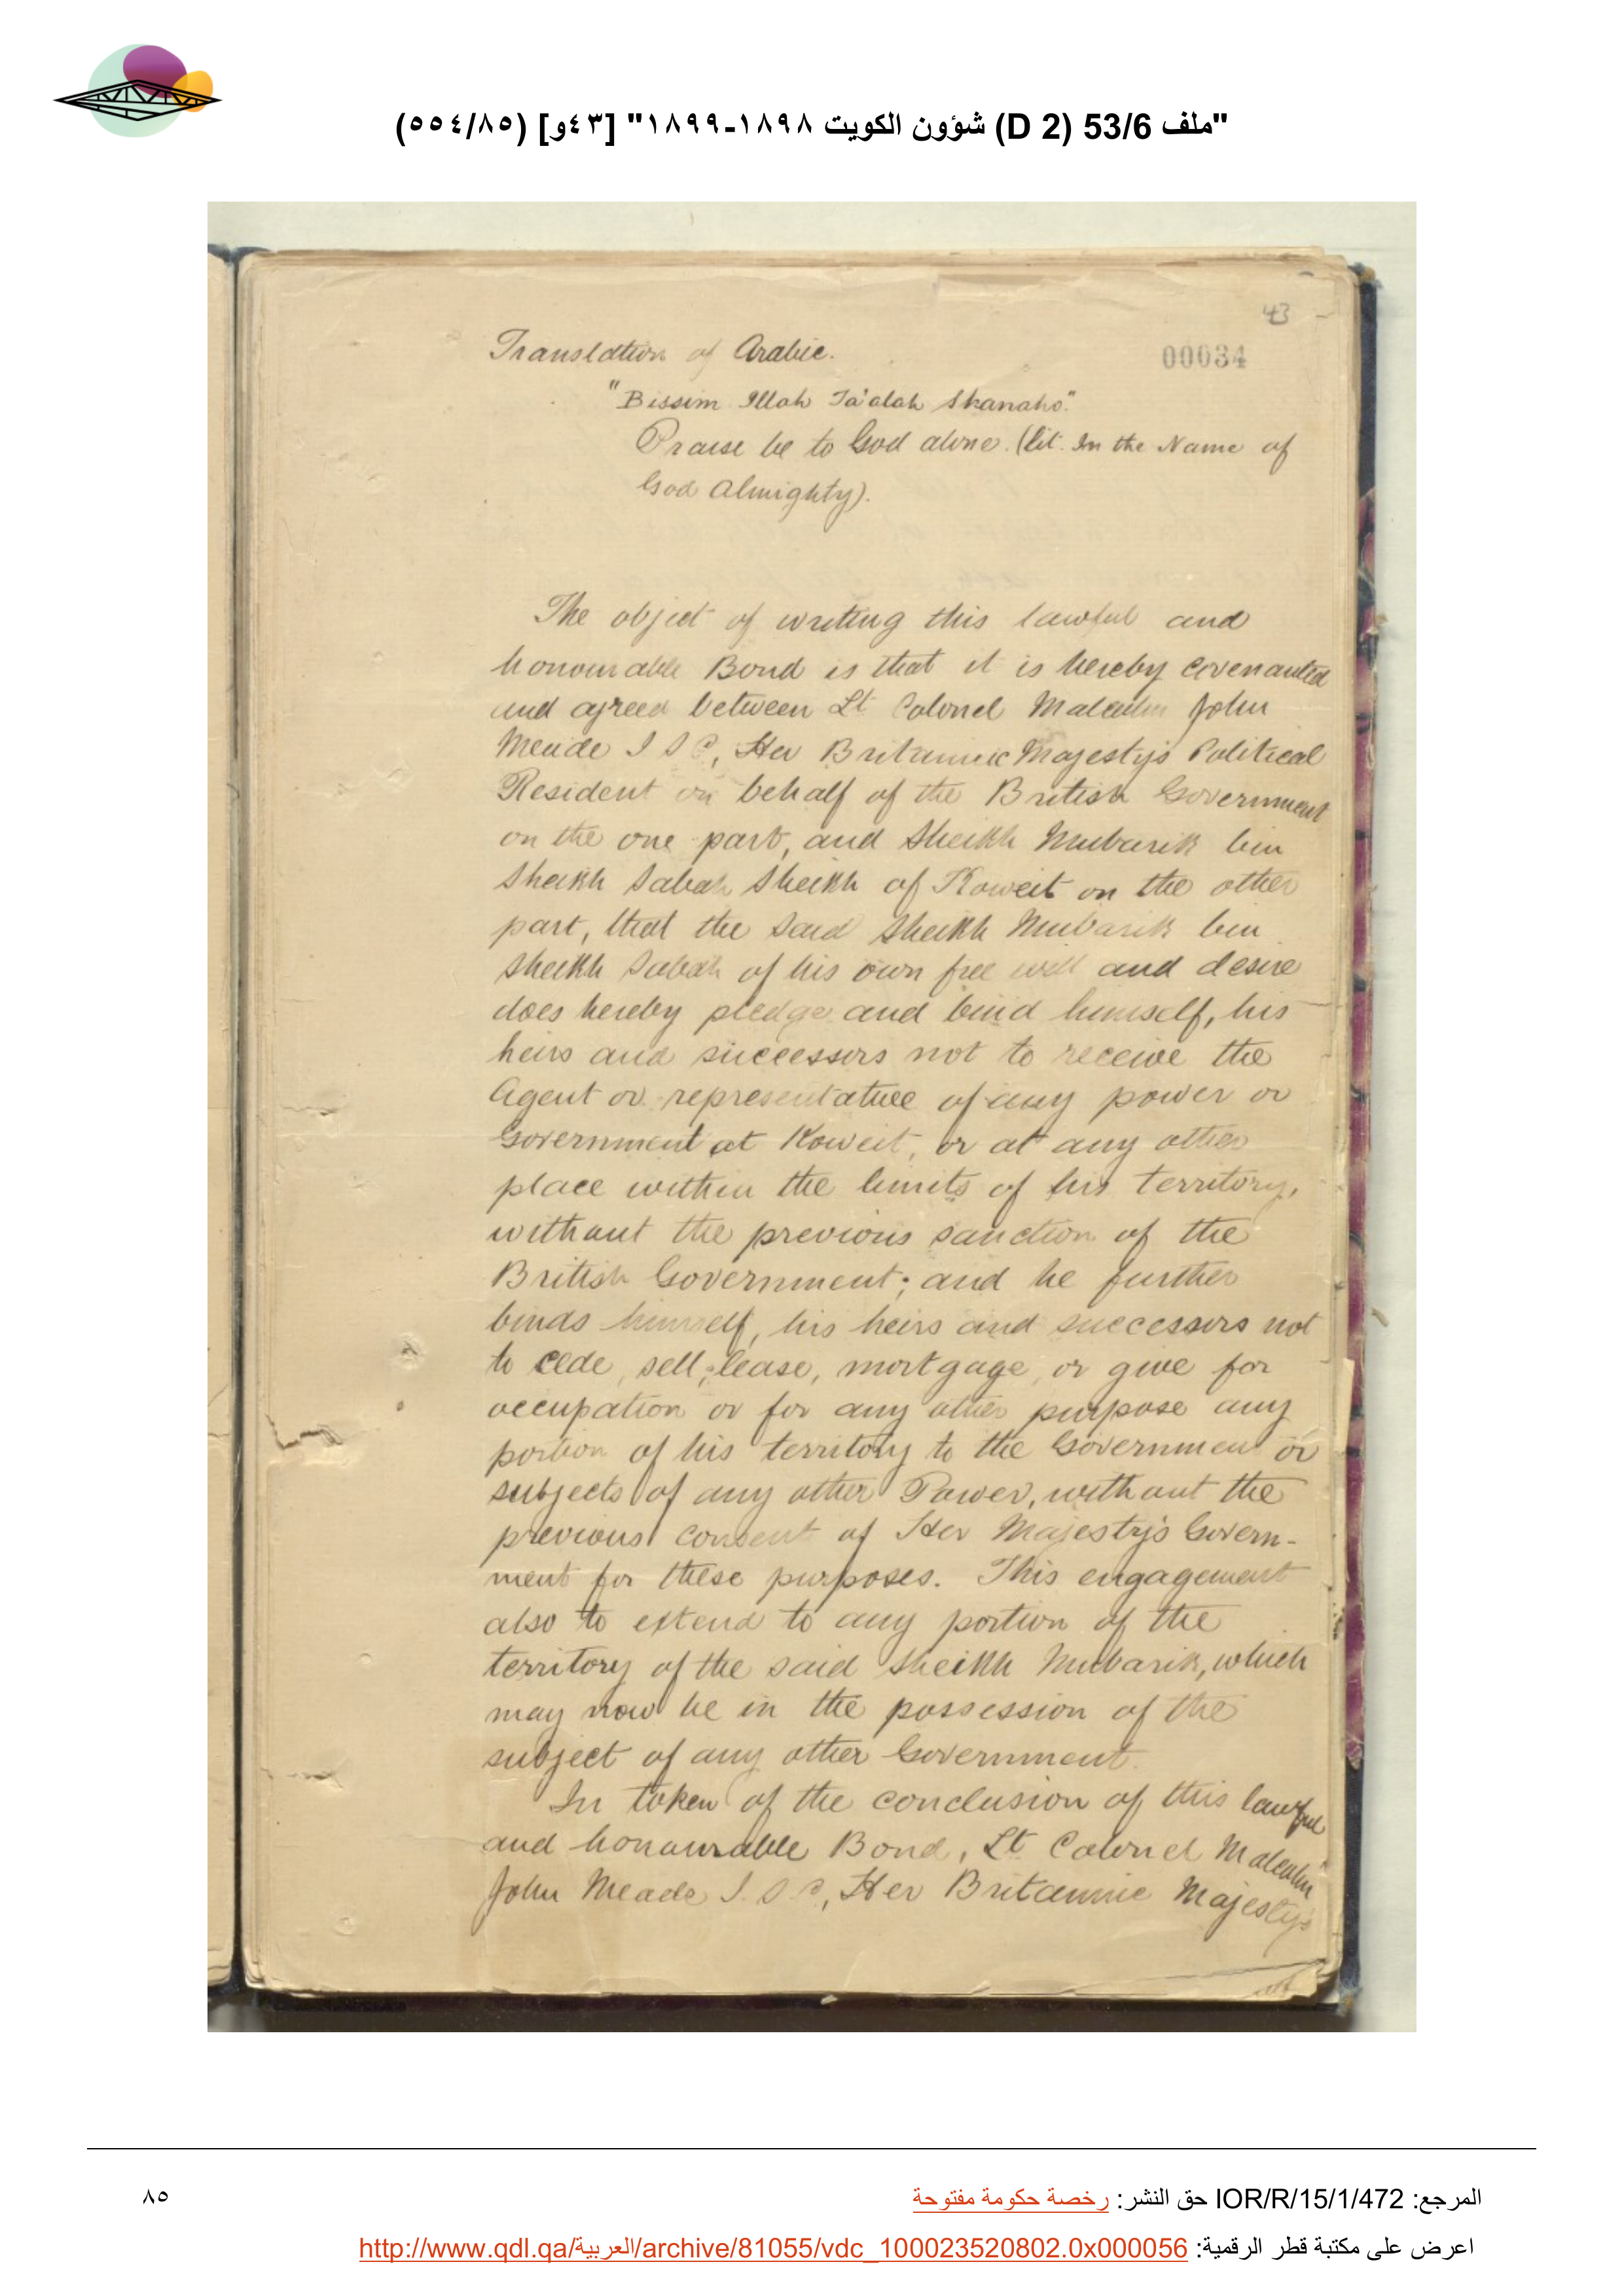 "ملف 53/6 (D 2) شؤون الكويت ١٨٩٨-١٨٩٩" [٤٣و] (٥٥٤/٨٥)
43
Translation of Arabic.
00034
"Bissim Illah Ta'alah Shanaho."
Praise be to God alone. (lit. In the Name of
God Almighty).
The object of writing this lawful and
honourable Bond is that it is hereby covenanted
and agreed between Lt Colonel Malcolm John
Meade I S C, Her Britannic Majesty's Political
Resident on behalf of the British Government
on the one part, and Sheikh Mubarik bin
Sheikh Sabah Sheikh of Koweit on the other
part, that the said Sheikh Mubarik bin
Sheikh Sabah of his own free will and desire
does hereby pledge and bind himself, his
heirs and successors not to receive the
Agent or representative of any power or
Government at Koweit, or at any other
place within the limits of his territory,
without the previous sanction of the
British Government; and he further
binds himself, his heirs and successors not
to cede, sell, lease, mortgage, or give for
occupation or for any other purpose any
portion of his territory to the Government or
subjects of any other Power, without the
previous consent of Her Majesty's Govern-
ment for these purposes. This engagement
also to extend to any portion of the
territory of the said Sheikh Mubarik, which
may now be in the possession of the
subject of any other Government.
In token of the conclusion of this lawful
and honourable Bond, Lt Colonel Malcolm
John Meade I.S.C, Her Britannic Majesty's
المرجع: IOR/R/15/1/472 حق النشر: رخصة حكومة مفتوحة
٨٥
اعرض على مكتبة قطر الرقمية: http://www.qdl.qa/العربية/archive/81055/vdc_100023520802.0x000056